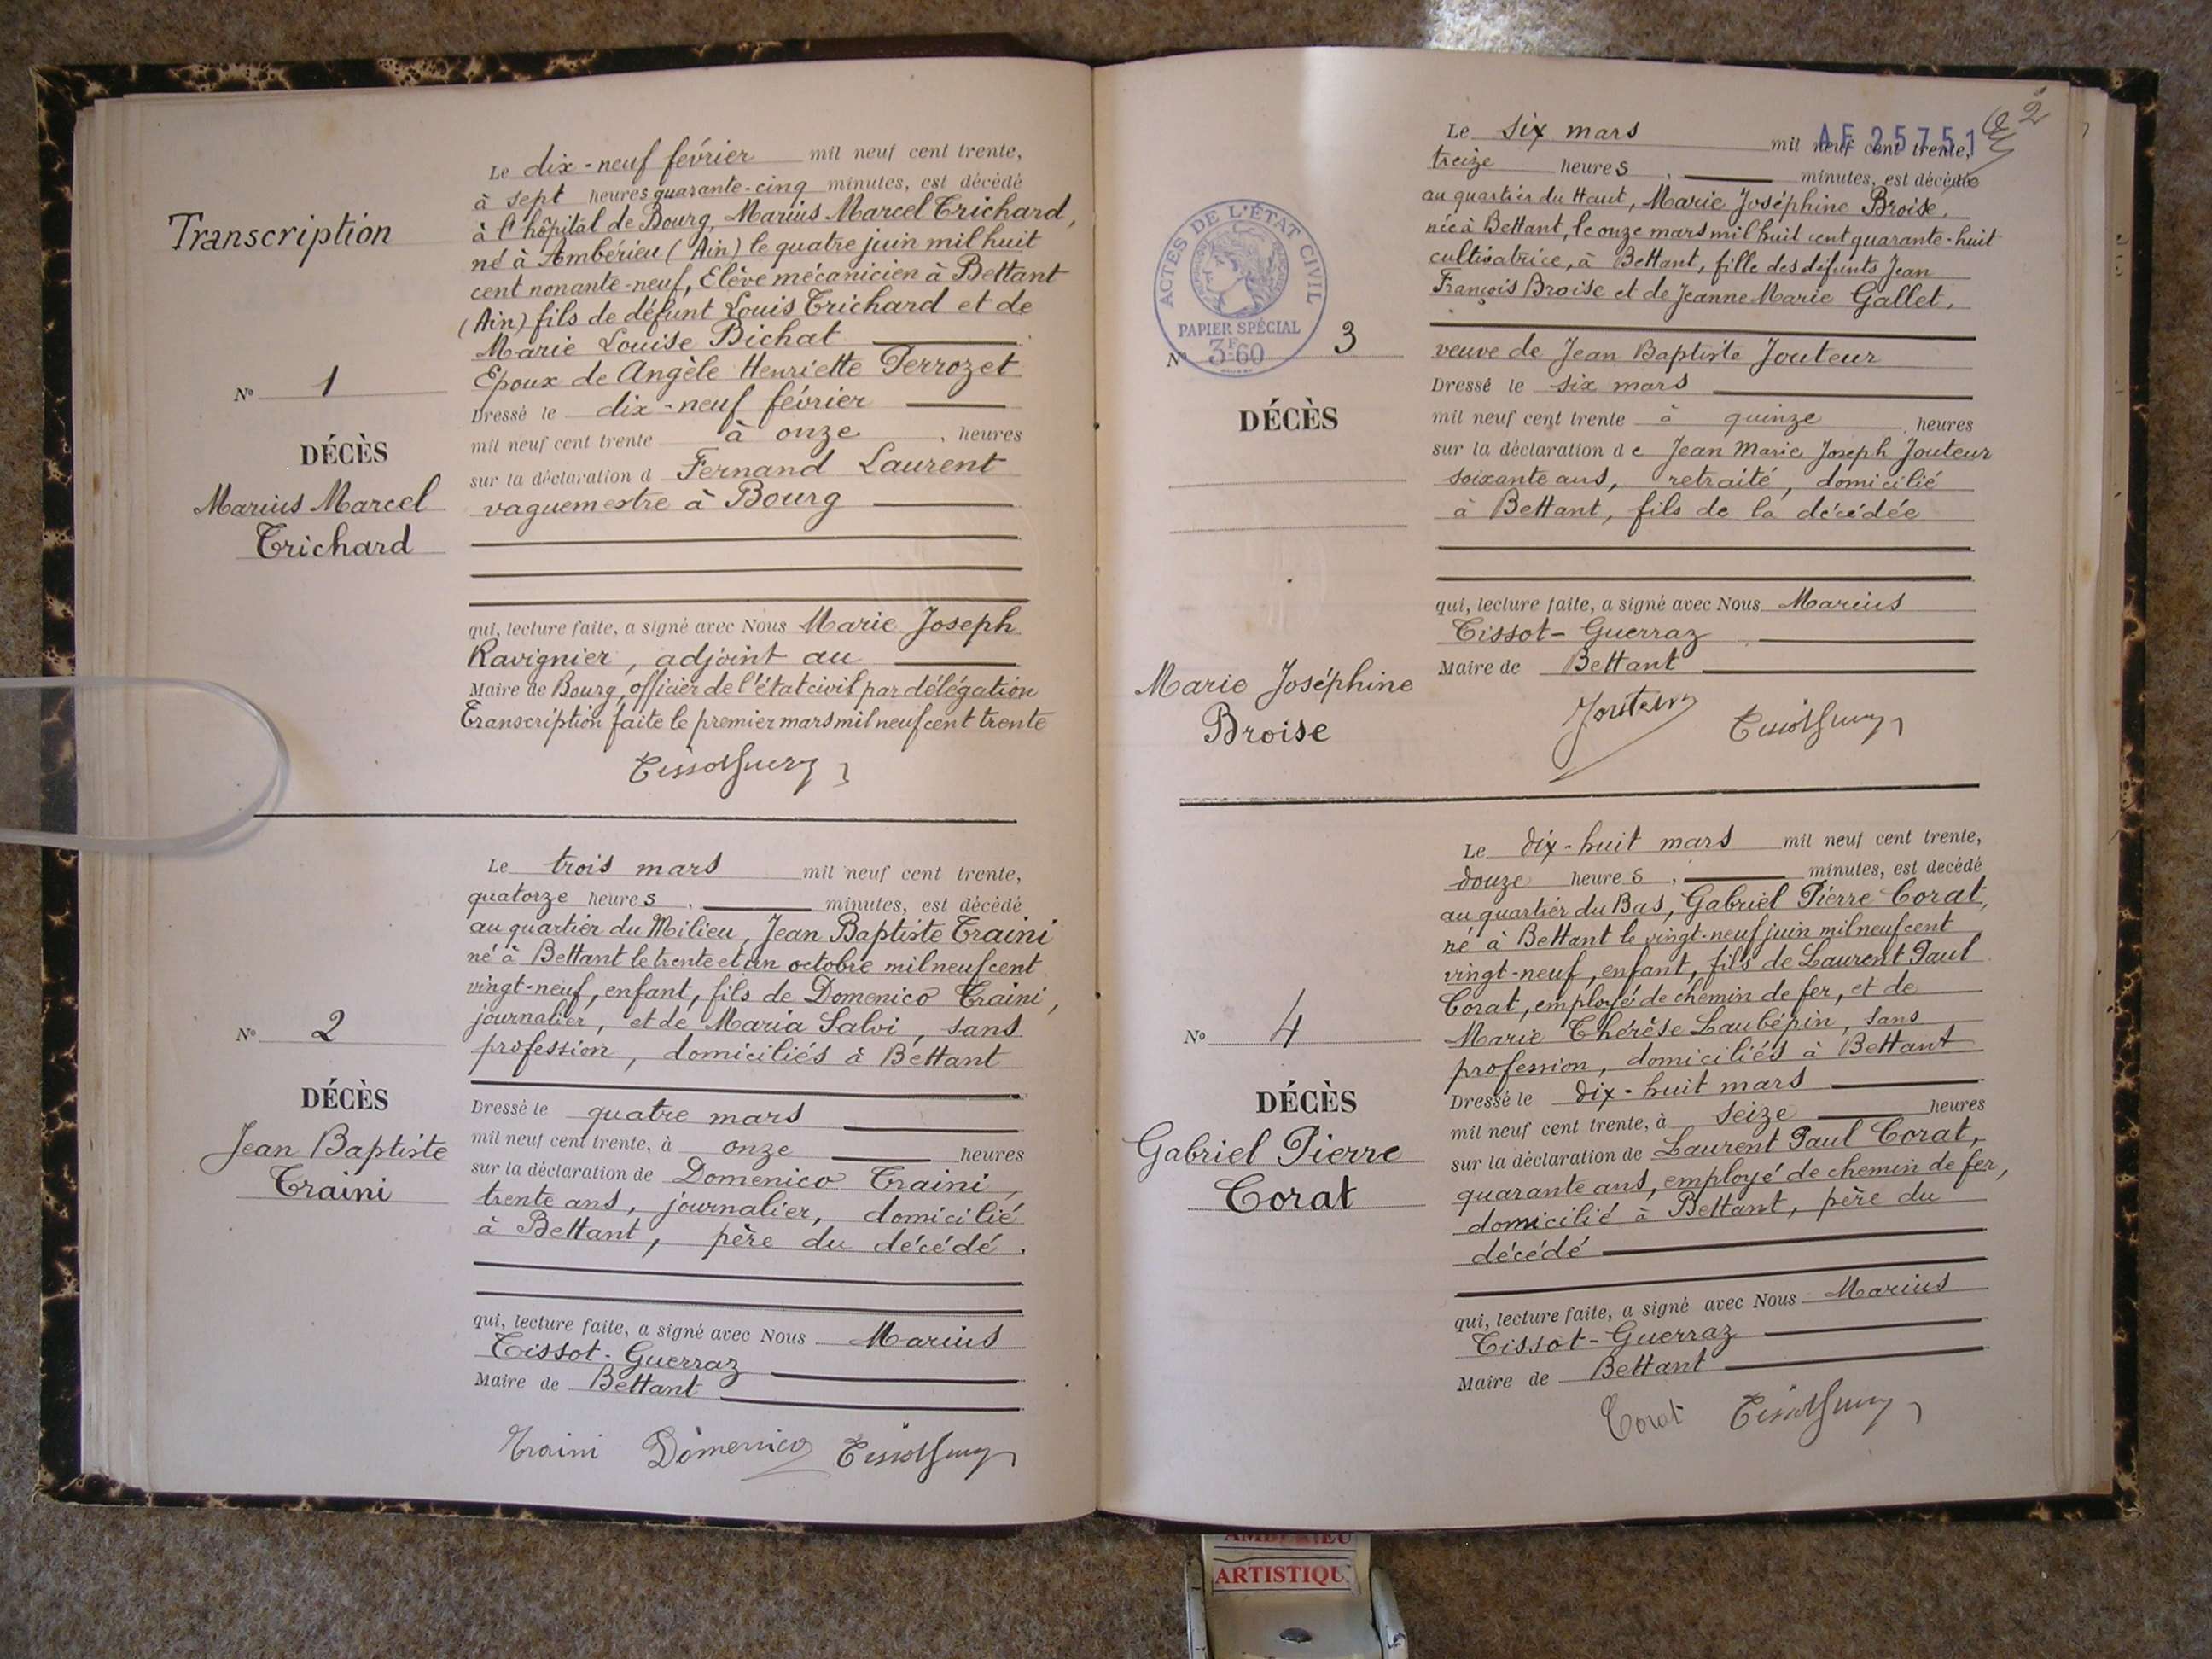 Transcription
N° 1
DÉCÈS
Marius Marcel
Trichard
Le dix-neuf février mil neuf cent trente,
à sept heures quarante-cinq minutes, est décédé
à l'hôpital de Bourg, Marius Marcel Trichard,
né à Ambérieu (Ain) le quatre juin mil huit
cent nonante-neuf, Elève mécanicien à Bettant
(Ain) fils de défunt Louis Trichard et de
Marie Louise Bichat
Epoux de Angèle Henriette Perrozet
Dressé le dix-neuf février
mil neuf cent trente à onze heures
sur la déclaration d Fernand Laurent
vaguemestre à Bourg
qui, lecture faite, a signé avec Nous Marie Joseph
Ravignier, adjoint au
Maire de Bourg, officier de l'état civil par délégation
Transcription faite le premier mars mil neuf cent trente
N° 2
DÉCÈS
Jean Baptiste
Traini
Le trois mars mil neuf cent trente,
quatorze heures, minutes, est décédé
au quartier du Milieu, Jean Baptiste Traini
né à Bettant le trente et un octobre mil neuf cent
vingt-neuf, enfant, fils de Domenico Traini,
journalier, et de Maria Salvi, sans
profession, domiciliés à Bettant
Dressé le quatre mars
mil neuf cent trente, à onze heures
sur la déclaration de Domenico Traini,
trente ans, journalier, domicilié
à Bettant, père du décédé.
qui, lecture faite, a signé avec Nous Marius
Tissot-Guerraz
Maire de Bettant
Traini Domenico
2
AF 25751
ACTES DE L'ÉTAT CIVIL
PAPIER SPÉCIAL
3F60
N° 3
DÉCÈS
Marie Joséphine
Broise
Le six mars mil neuf cent trente,
treize heures, minutes, est décédée
au quartier du Haut, Marie Joséphine Broise,
née à Bettant, le onze mars mil huit cent quarante-huit
cultivatrice, à Bettant, fille des défunts Jean
François Broise et de Jeanne Marie Gallet,
veuve de Jean Baptiste Jouteur
Dressé le six mars
mil neuf cent trente à quinze heures
sur la déclaration de Jean Marie Joseph Jouteur
soixante ans, retraité, domicilié
à Bettant, fils de la décédée
qui, lecture faite, a signé avec Nous Marius
Tissot-Guerraz
Maire de Bettant
Jouteur
N° 4
DÉCÈS
Gabriel Pierre
Corat
Le dix-huit mars mil neuf cent trente,
douze heures, minutes, est decédé
au quartier du Bas, Gabriel Pierre Corat,
né à Bettant le vingt-neuf juin mil neuf cent
vingt-neuf, enfant, fils de Laurent Paul
Corat, employé de chemin de fer, et de
Marie Thérèse Laubépin, sans
profession, domiciliés à Bettant
Dressé le dix-huit mars
mil neuf cent trente, à seize heures
sur la déclaration de Laurent Paul Corat,
quarante ans, employé de chemin de fer,
domicilié à Bettant, père du
décédé
qui, lecture faite, a signé avec Nous Marius
Tissot-Guerraz
Maire de Bettant
Corat
ARTISTIQU